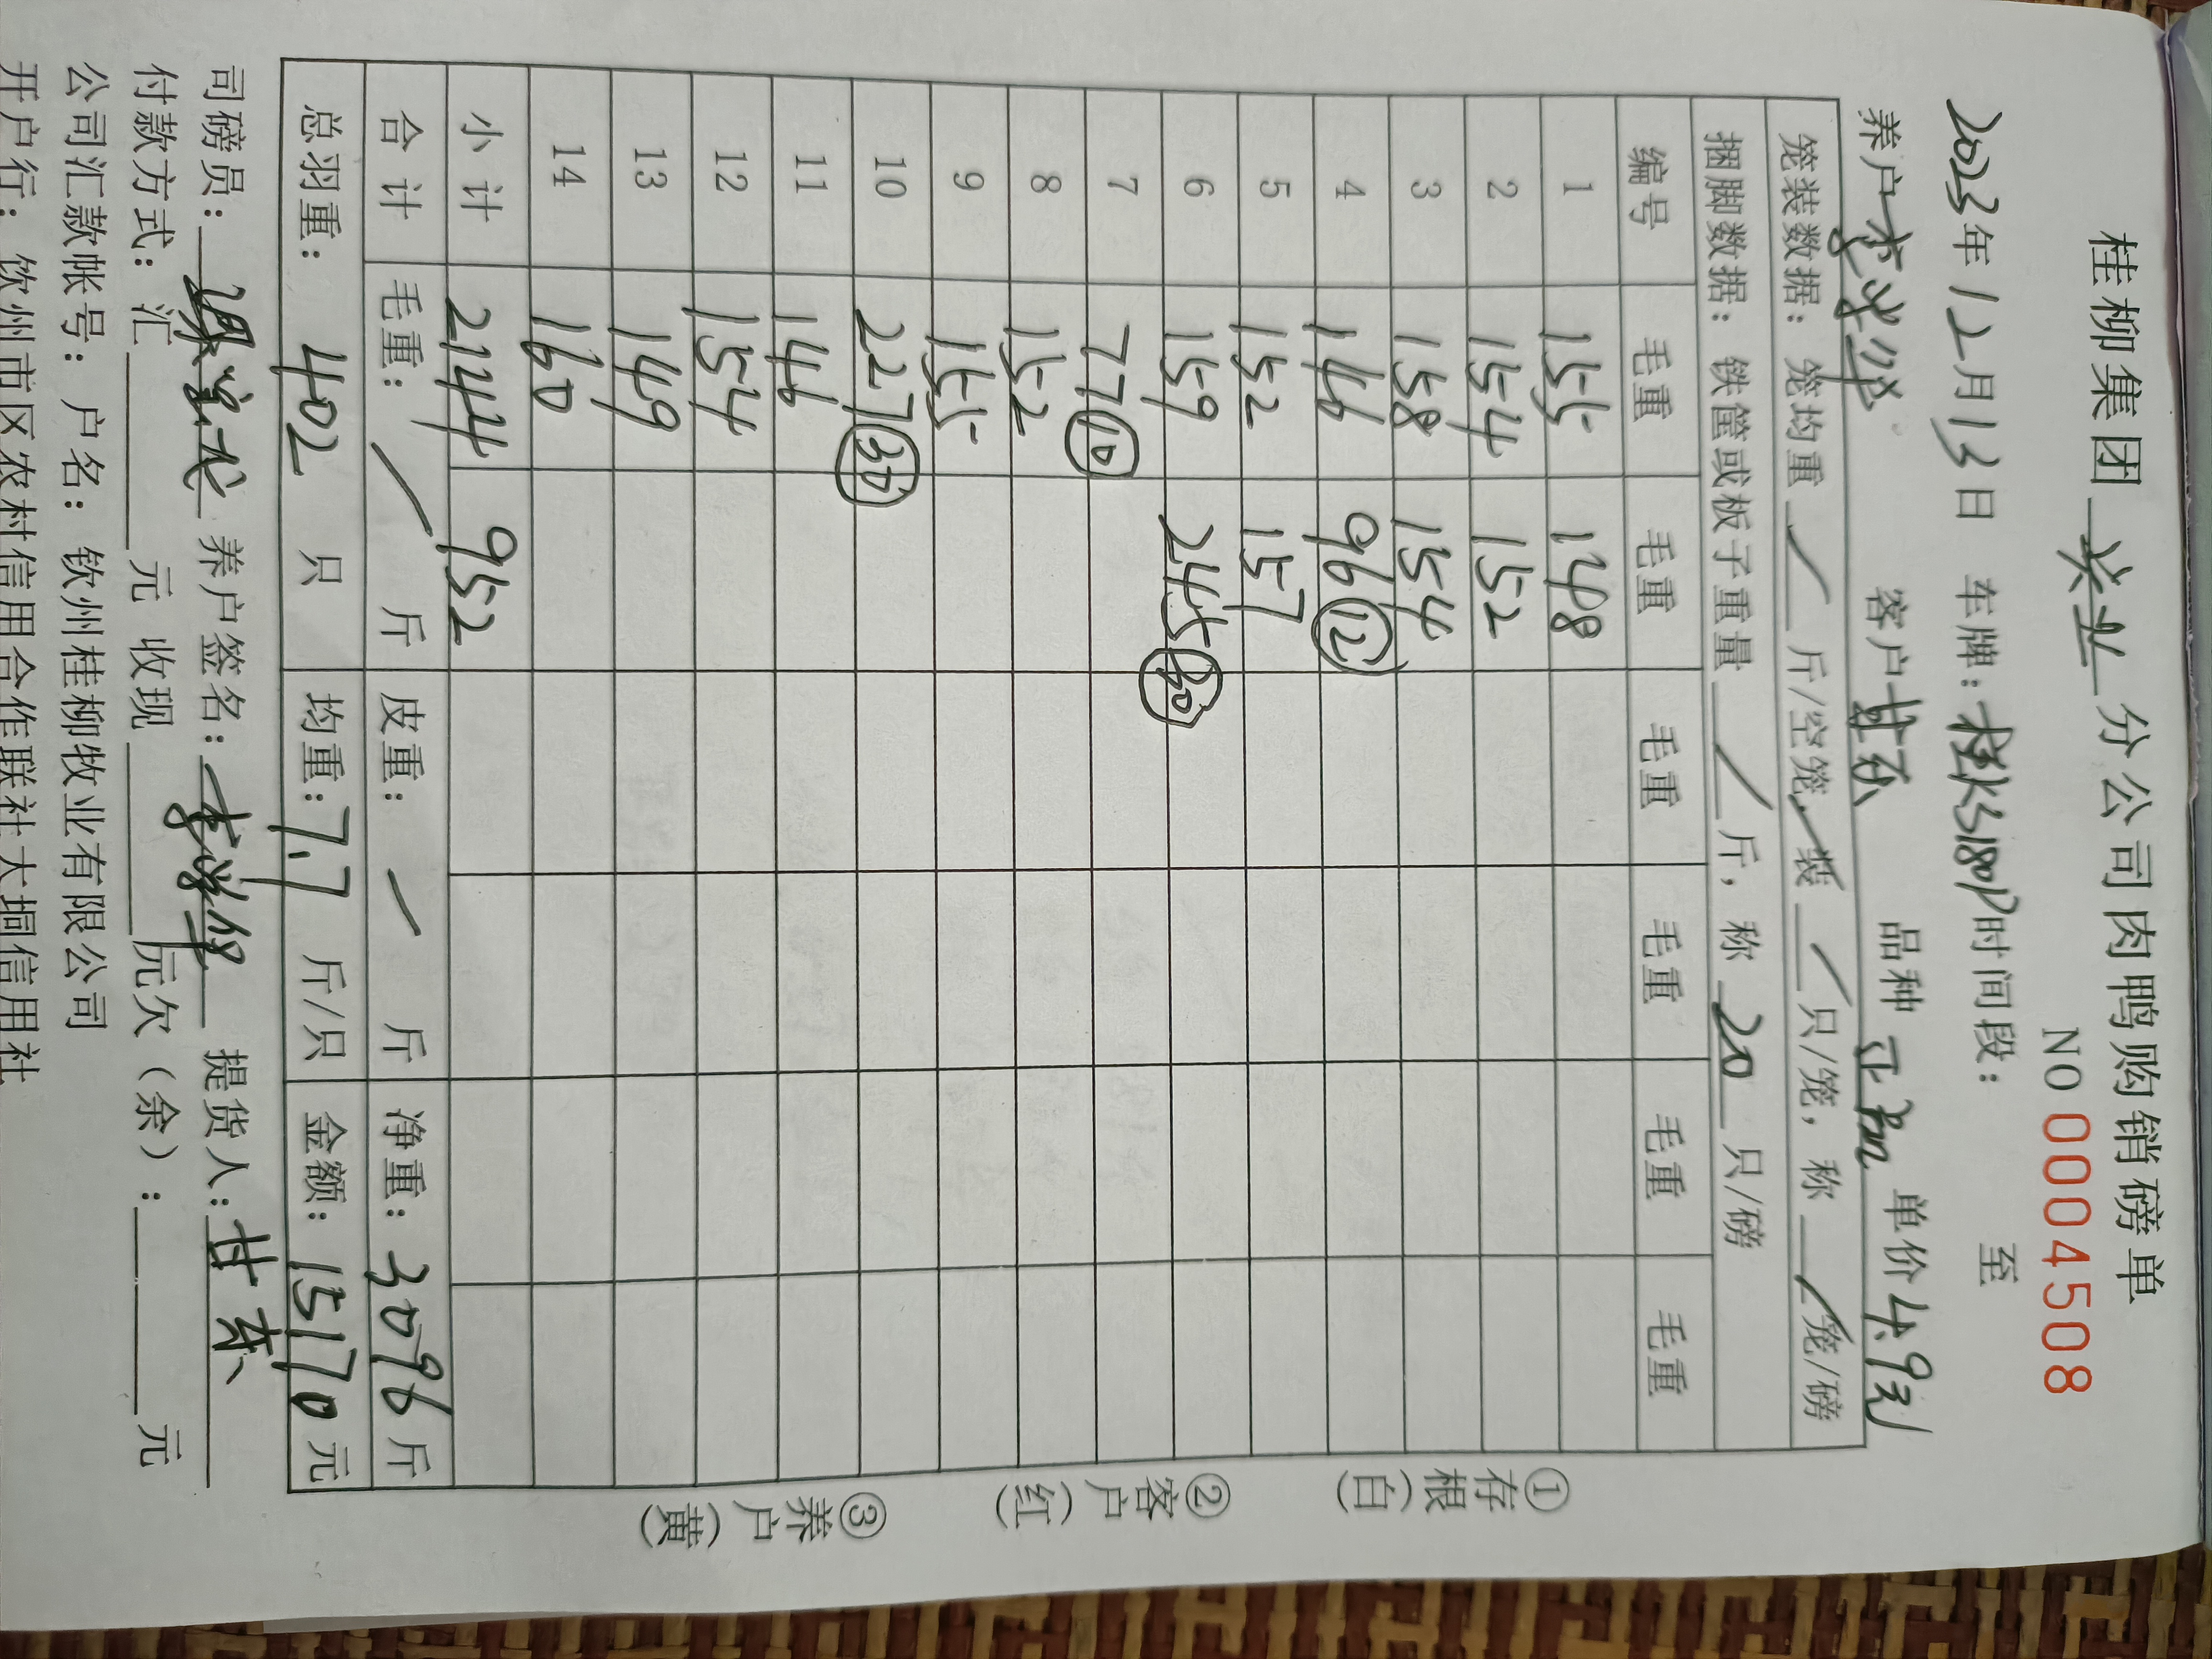 桂柳集团 兴业 分公司肉鸭购销磅单
NO 0004508
2023年12月13日 车牌: 时间段: 至
养户 客户 甘东 品种 单价 4.9元
笼装数据: 笼均重 / 斤/空笼, 装 / 只/笼, 称 / 笼/磅
捆脚数据: 铁筐或板子重量 / 斤, 称 20 只/磅
编号 毛重 毛重 毛重 毛重 毛重 毛重
1 155 148
2 154 152
3 158 154
4 146 96 ⑫
5 152 157
6 159 245 ㉚
7 77 ⑩
8 152
9 155
10 227 ㉚
11 146
12 154
13 149
14 160
小计 2144 952
合计 毛重: / 斤 皮重: / 斤 净重: 3096 斤
总羽重: 402 只 均重: 7.7 斤/只 金额: 15170 元
司磅员: 养户签名: 提货人: 甘东
付款方式: 汇 元 收现 元欠(余): 元
公司汇款帐号: 户名: 钦州桂柳牧业有限公司
开户行: 钦州市区农村信用合作联社大垌信用社
①存根(白)
②客户(红)
③养户(黄)